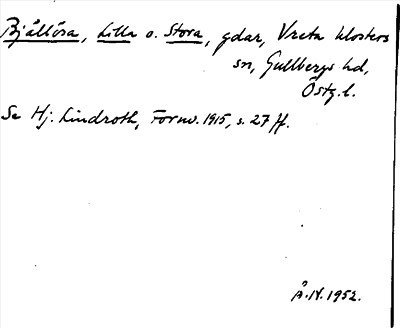 Bjällösa, Lilla o. Stora, gdar, Vreta klosters
sn, Gullbergs hd,
Östg.l.
Se Hj. Lindroth, Fornv. 1915, s. 27 ff.
Å. N. 1952.